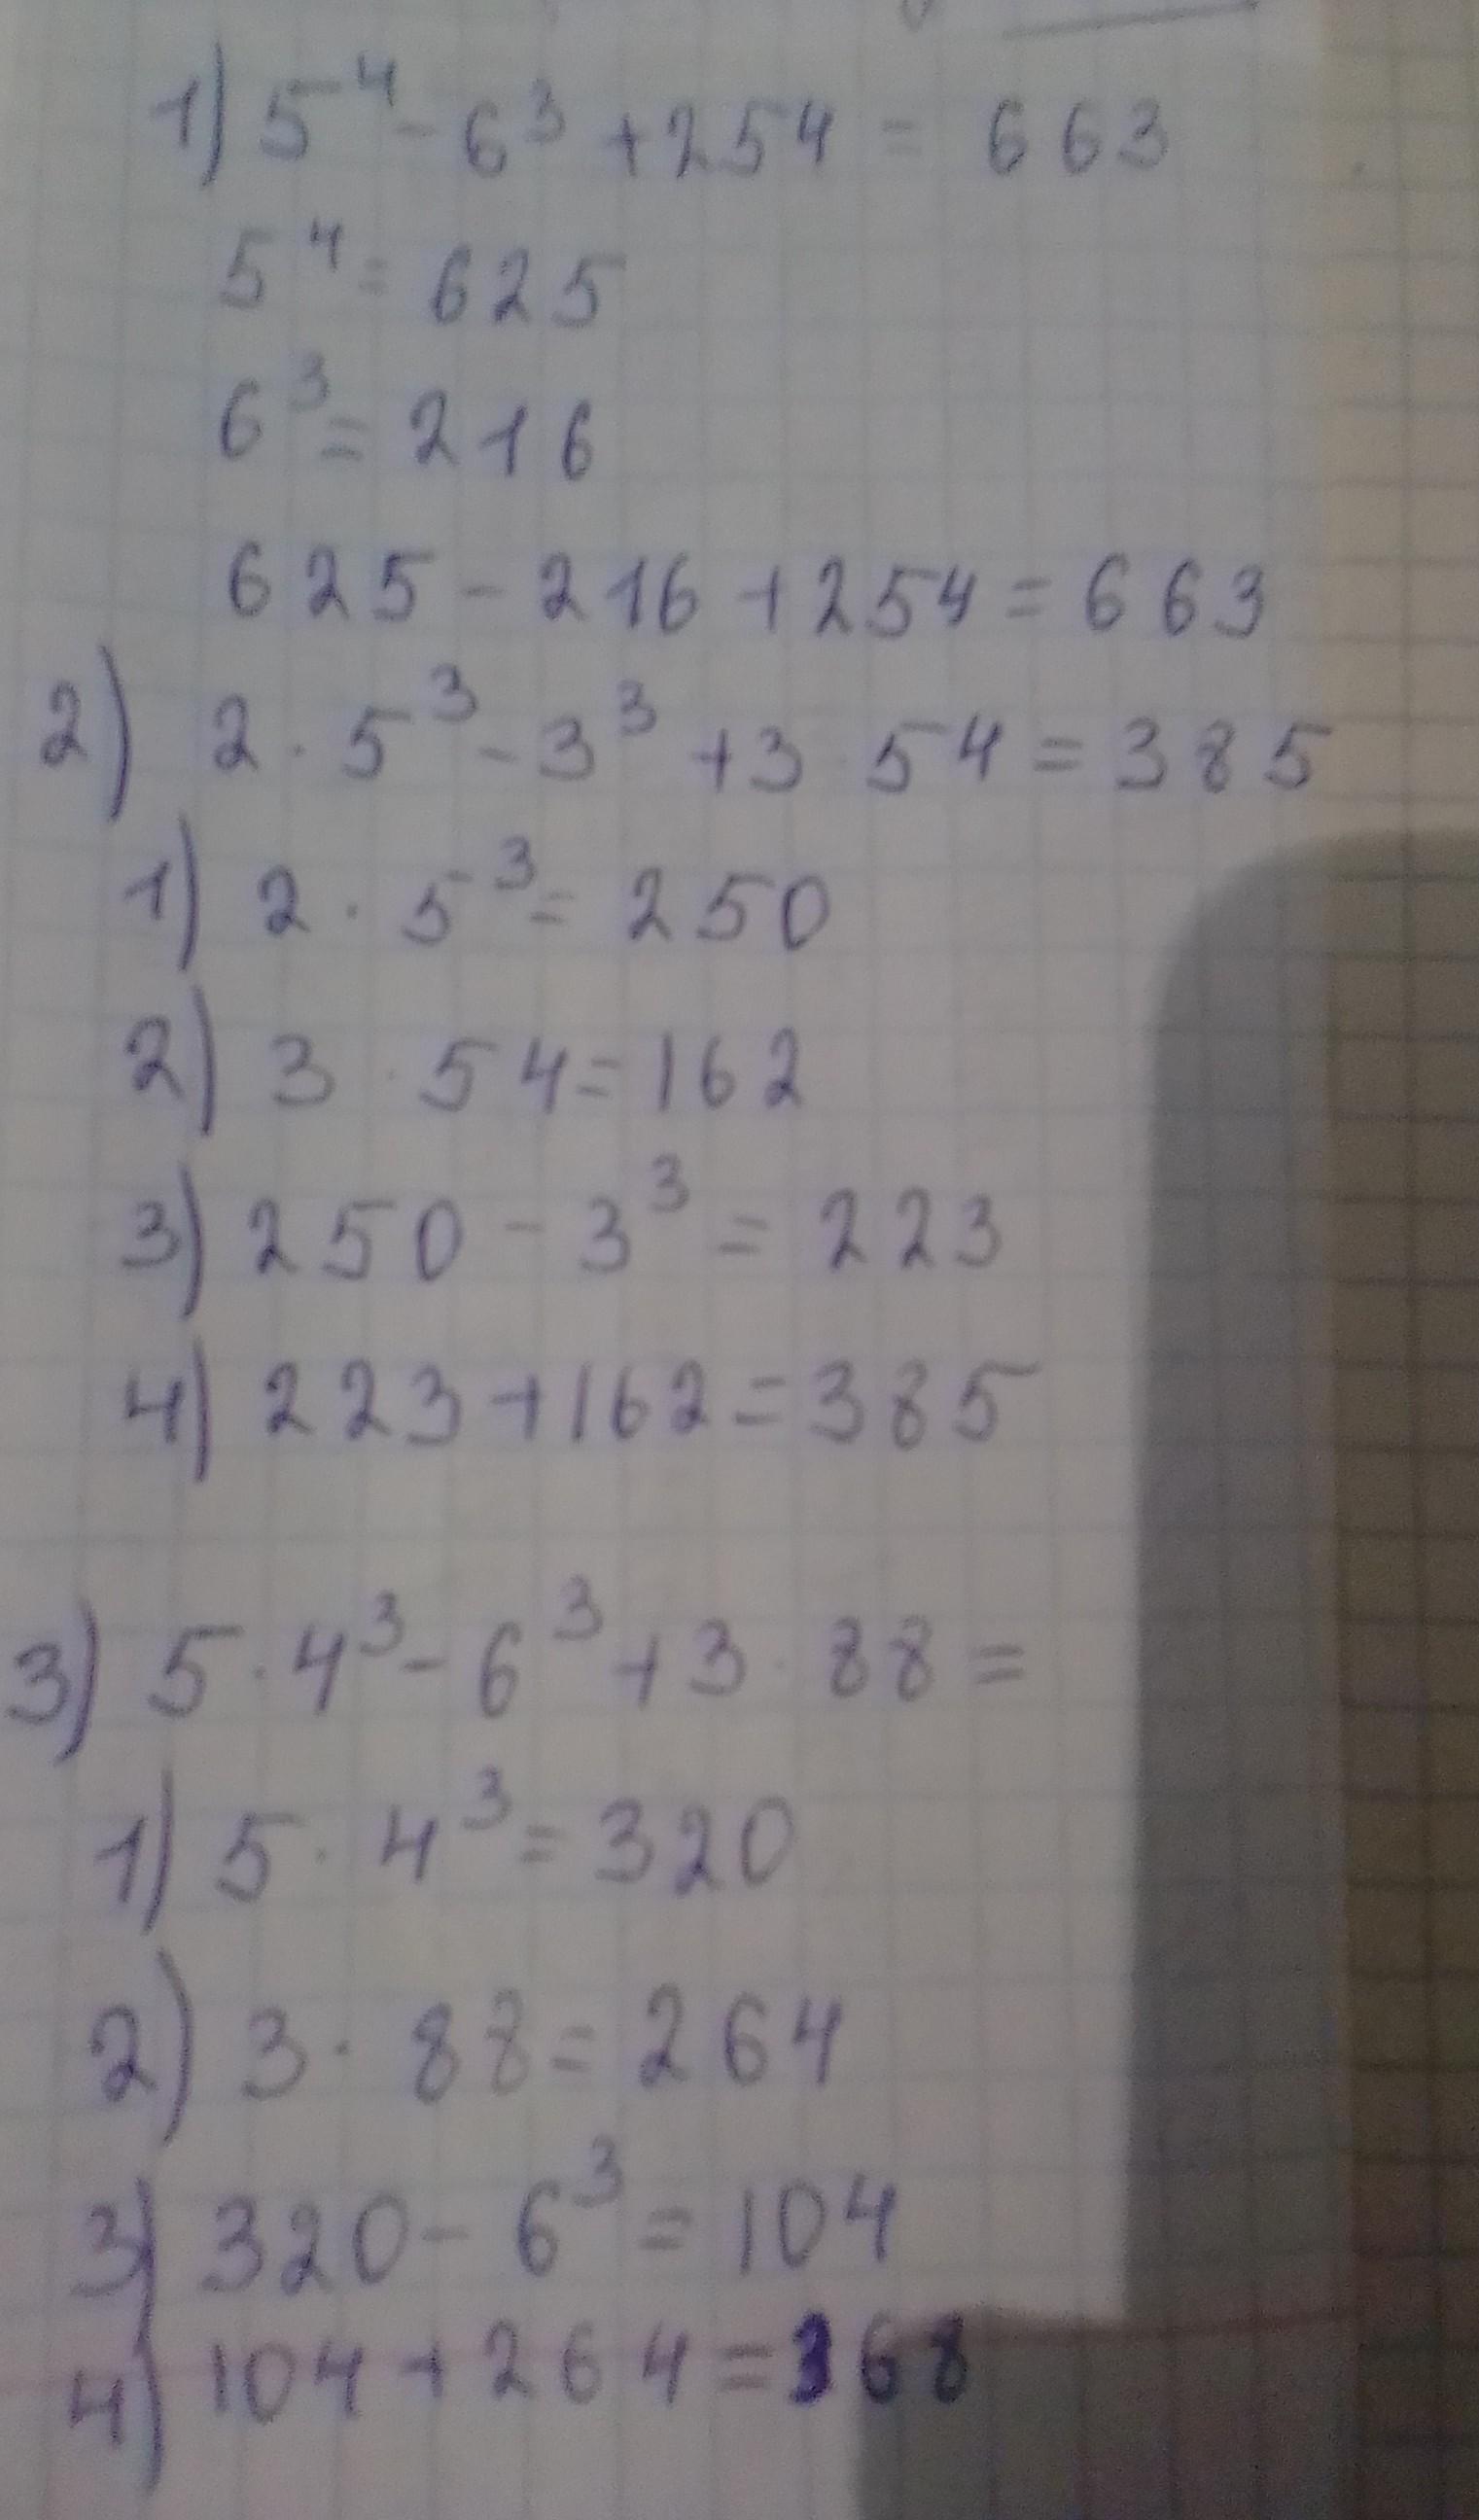 1) 5⁴ - 6³ + 254 = 663
5⁴ = 625
6³ = 216
625 - 216 + 254 = 663
2) 2 · 5³ - 3³ + 3 · 54 = 385
1) 2 · 5³ = 250
2) 3 · 54 = 162
3) 250 - 3³ = 223
4) 223 + 162 = 385
3) 5 · 4³ - 6³ + 3 · 88 =
1) 5 · 4³ = 320
2) 3 · 88 = 264
3) 320 - 6³ = 104
4) 104 + 264 = 368